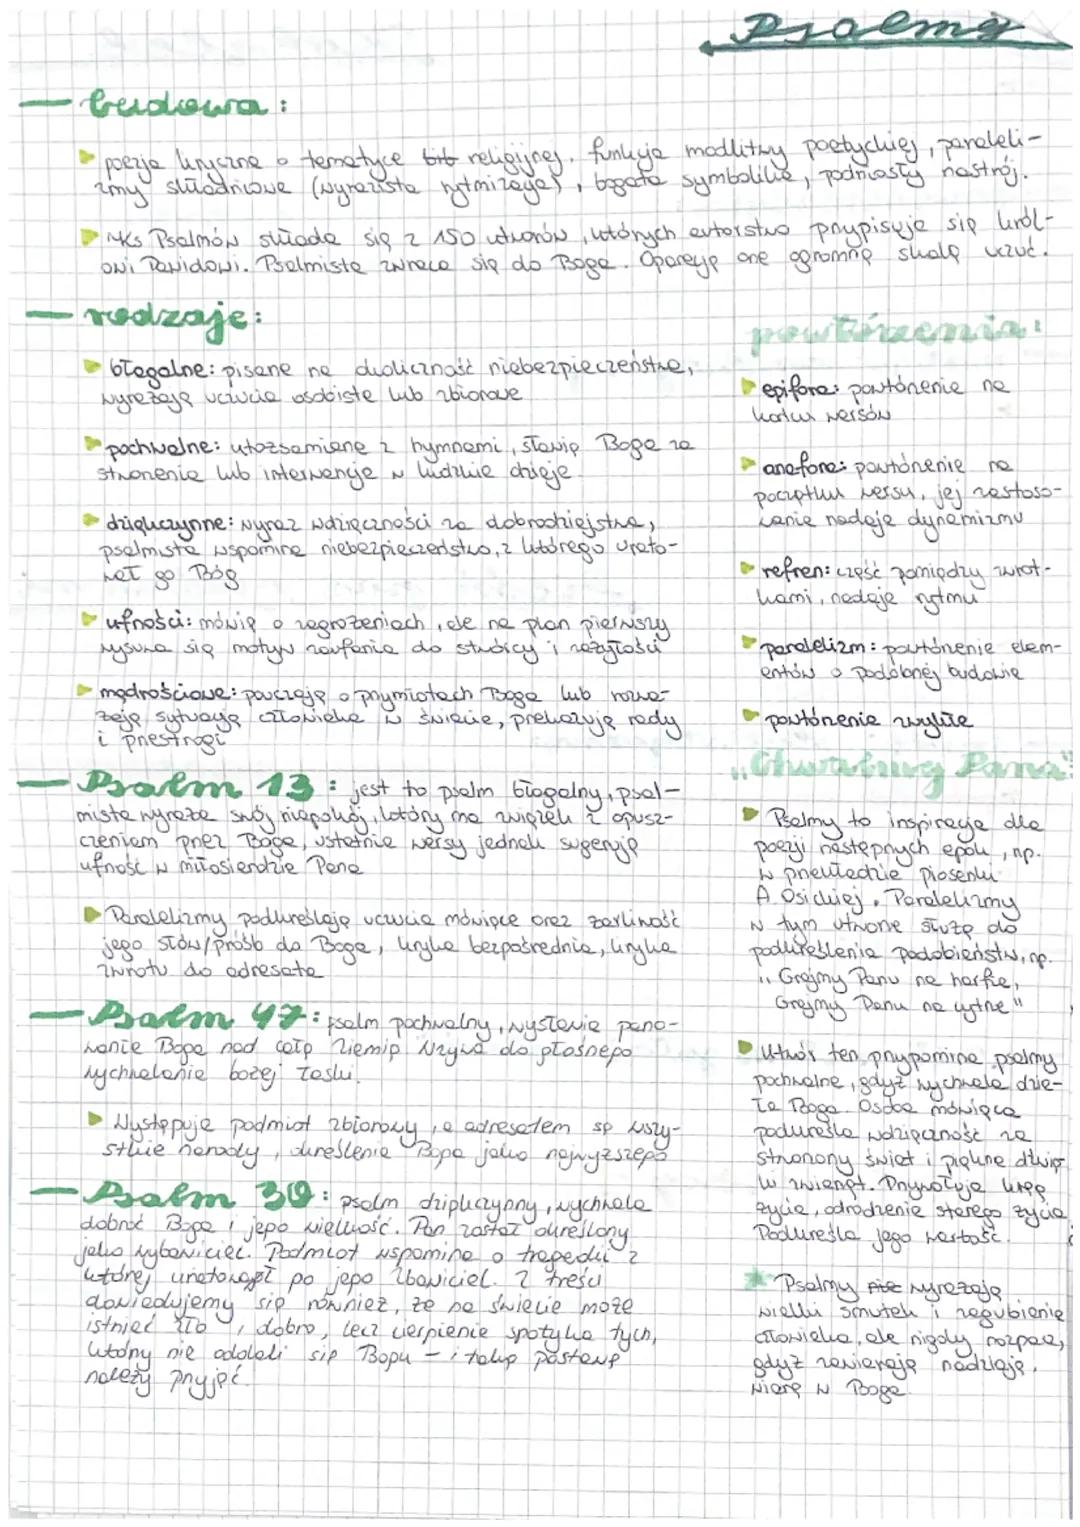 Psalmy
— budowa:
poezja liryczna o tematyce religijnej, funkcja modlitwy poetyckiej, paraleli-
zmy składniowe (wyrazista rytmizacja), bogata symbolika, podniosły nastrój.
Ks Psalmów składa się z 150 utworów, których autorstwo przypisuje się król-
owi Dawidowi. Psalmista zwraca się do Boga. Operują one ogromną skalą uczuć.
— rodzaje:
błagalne: pisane na okoliczność niebezpieczeństwa,
wyrażają uczucia osobiste lub zbiorowe
pochwalne: utożsamiane z hymnami, sławią Boga za
stworzenie lub interwencje w ludzkie dzieje
dziękczynne: wyraz wdzięczności za dobrodziejstwa,
psalmista wspomina niebezpieczeństwo, z którego urato-
wał go Bóg
ufności: mówią o zagrożeniach, ale na plan pierwszy
wysuwa się motyw zaufania do stwórcy i zażyłości
mądrościowe: pouczają o przymiotach Boga lub rozwa-
żają sytuację człowieka w świecie, przekazują rady
i przestrogi
— Psalm 13: jest to psalm błagalny, psal-
mista wyraża swój niepokój, który ma związek z opusz-
czeniem przez Boga, ostatnie wersy jednak sugerują
ufność w miłosierdzie Pana
Paralelizmy podkreślają uczucia mówiące oraz żarliwość
jego słów/próśb do Boga, liryka bezpośrednia, liryka
zwrotu do adresata
— Psalm 47: psalm pochwalny, wysławia pano-
wanie Boga nad całą ziemią. Wzywa do głośnego
wychwalania bożej łaski.
Występuje podmiot zbiorowy, a adresatem są wszy-
stkie narody, określenie Boga jako najwyższego
— Psalm 30: psalm dziękczynny, wychwala
dobroć Boga i jego wielkość. Pan został określony
jako wybawiciel. Podmiot wspomina o tragedii z
której uratował go jego zbawiciel. Z treści
dowiadujemy się również, że na świecie może
istnieć zło, dobro, lecz cierpienie spotyka tych,
którzy nie oddali się Bogu – i taką postawę
należy przyjąć.
powtórzenia:
epifora: powtórzenie na
końcu wersów
anafora: powtórzenie na
początku wersu, jej zastoso-
wanie nadaje dynamizmu
refren: część pomiędzy zwrot-
kami, nadaje rytmu
paralelizm: powtórzenie elem-
entów o podobnej budowie
powtórzenie zwykłe
"Chwalmy Pana"
Psalmy to inspiracja dla
poezji następnych epok, np.
w przekładzie piosenki
A. Osickiej. Paralelizmy
w tym utworze służą do
podkreślenia podobieństw, np.
"Grajmy Panu na harfie,
Grajmy Panu na cytrze"
Utwór ten przypomina psalmy
pochwalne, gdyż wychwala dzie-
ła Boga. Osoba mówiąca
podkreśla wdzięczność za
stworzony świat i piękne
Przywołuje kręg
życia, odrodzenie starego życia
Podkreśla jego wartość.
Psalmy wyrażają
wielki smutek i zagubienie
człowieka, ale nigdy rozpacz,
gdyż zawierają nadzieję,
wiarę w Boga.